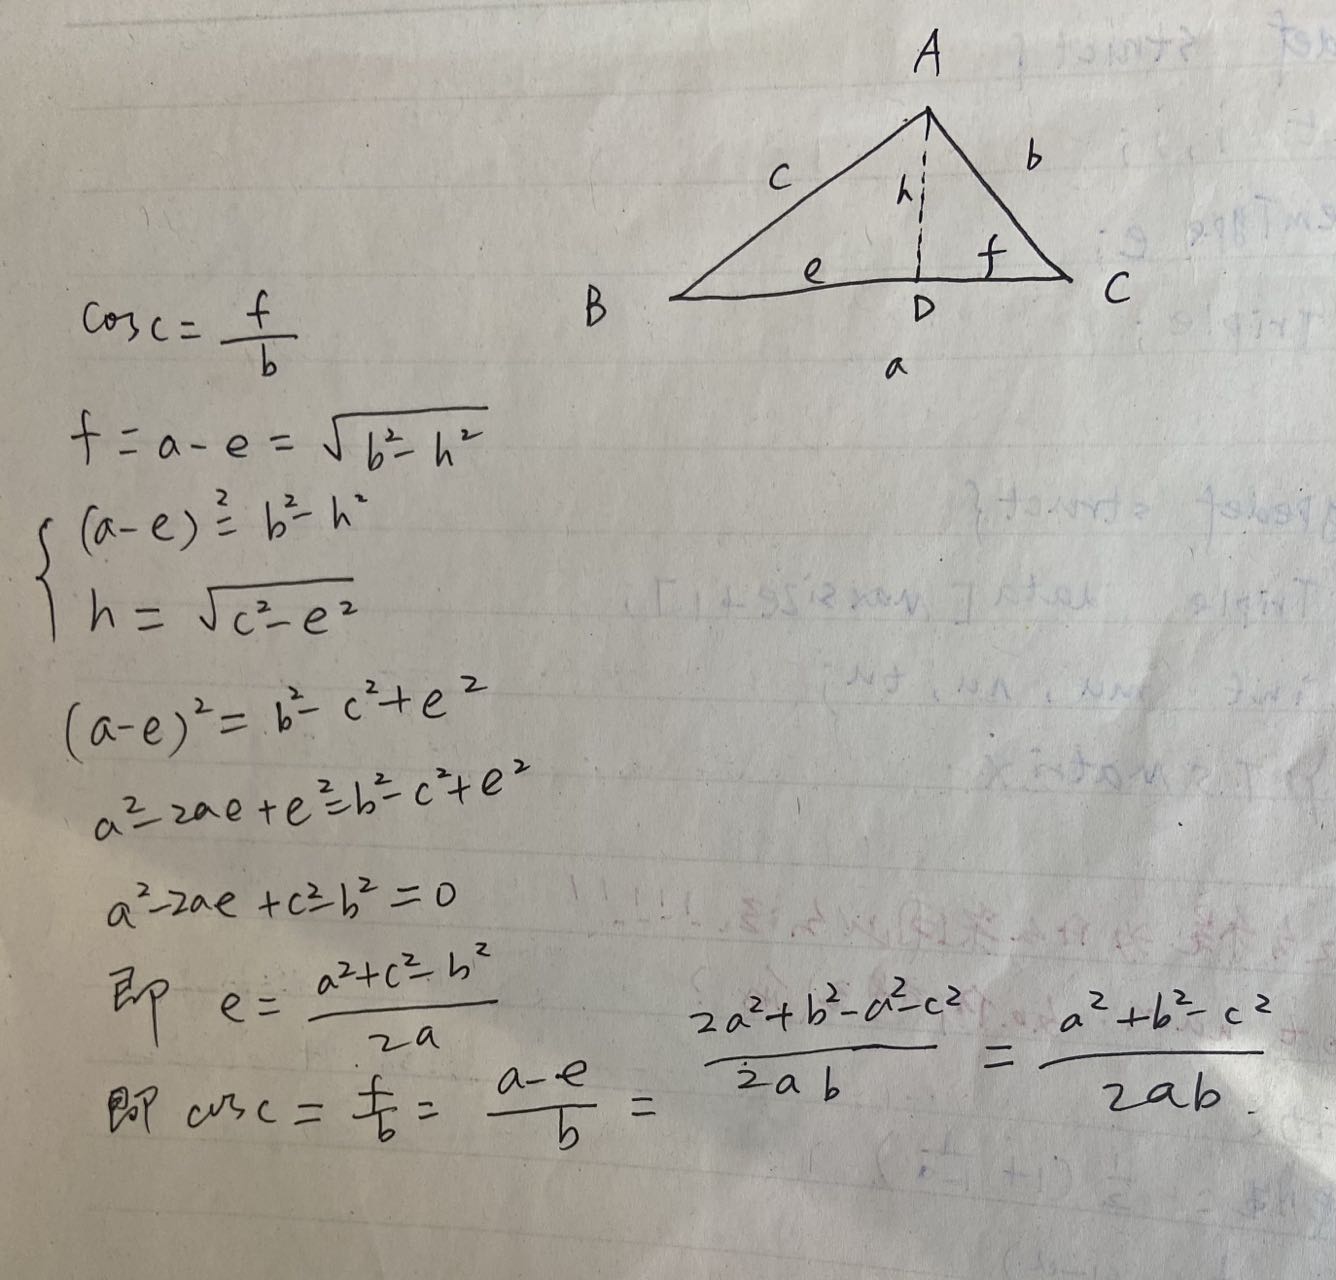 A
c
h
b
e
f
B
D
C
a
cos c = f/b
f = a - e = √(b² - h²)
(a-e)² = b² - h²
h = √(c² - e²)
(a-e)² = b² - c² + e²
a² - 2ae + e² = b² - c² + e²
a² - 2ae + c² - b² = 0
即 e = (a² + c² - b²)/2a
即 cos c = f/b = (a-e)/b = (2a² + b² - a² - c²)/2ab = (a² + b² - c²)/2ab.